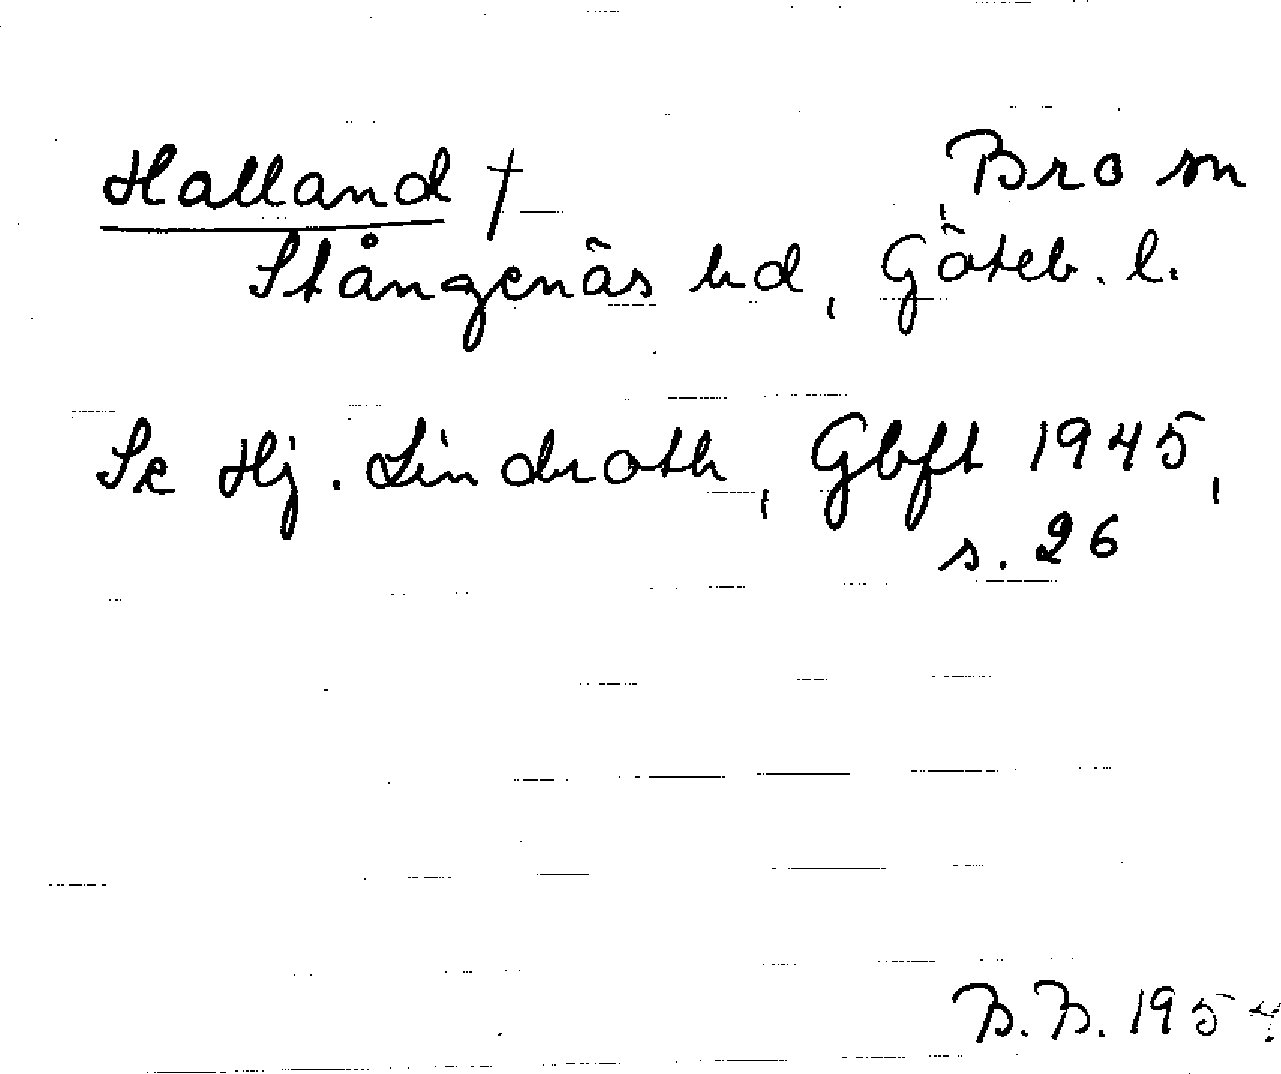 Halland † Bro sn
Stångenäs hd, Göteb. l.
Se Hj. Lindroth, Gbft 1945,
s. 26
B.B. 1954